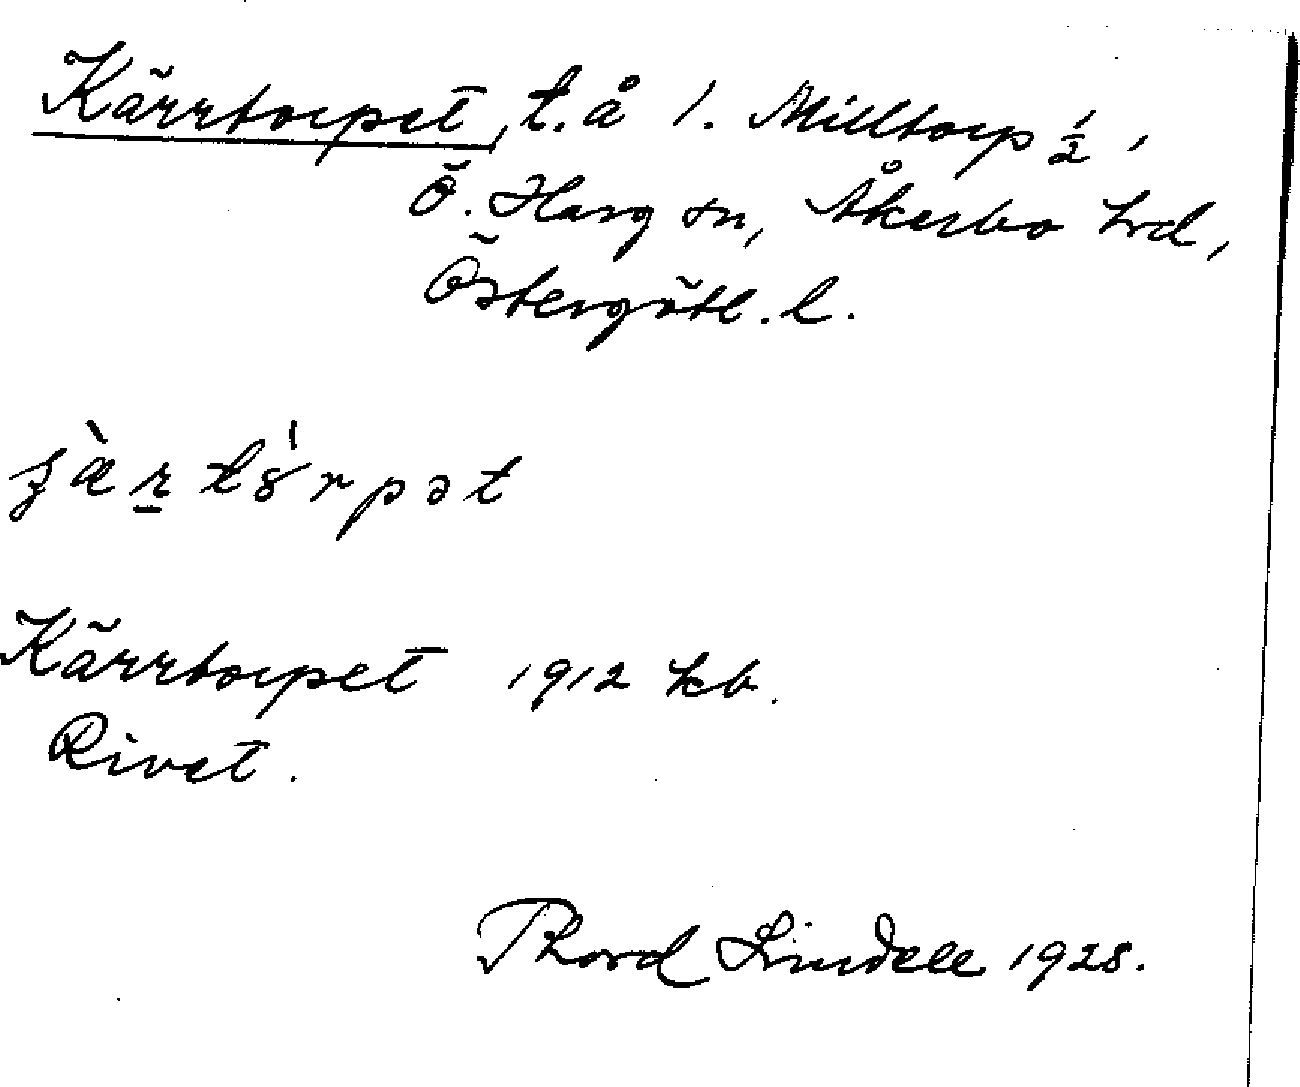 Kärrtorpet, t. å 1. Milltorp ½,
Ö. Harg sn, Åkerbo hrd,
Östergötl. l.
Kärrtorpet 1912 kb.
Rivet.
Thord Lindell 1928.